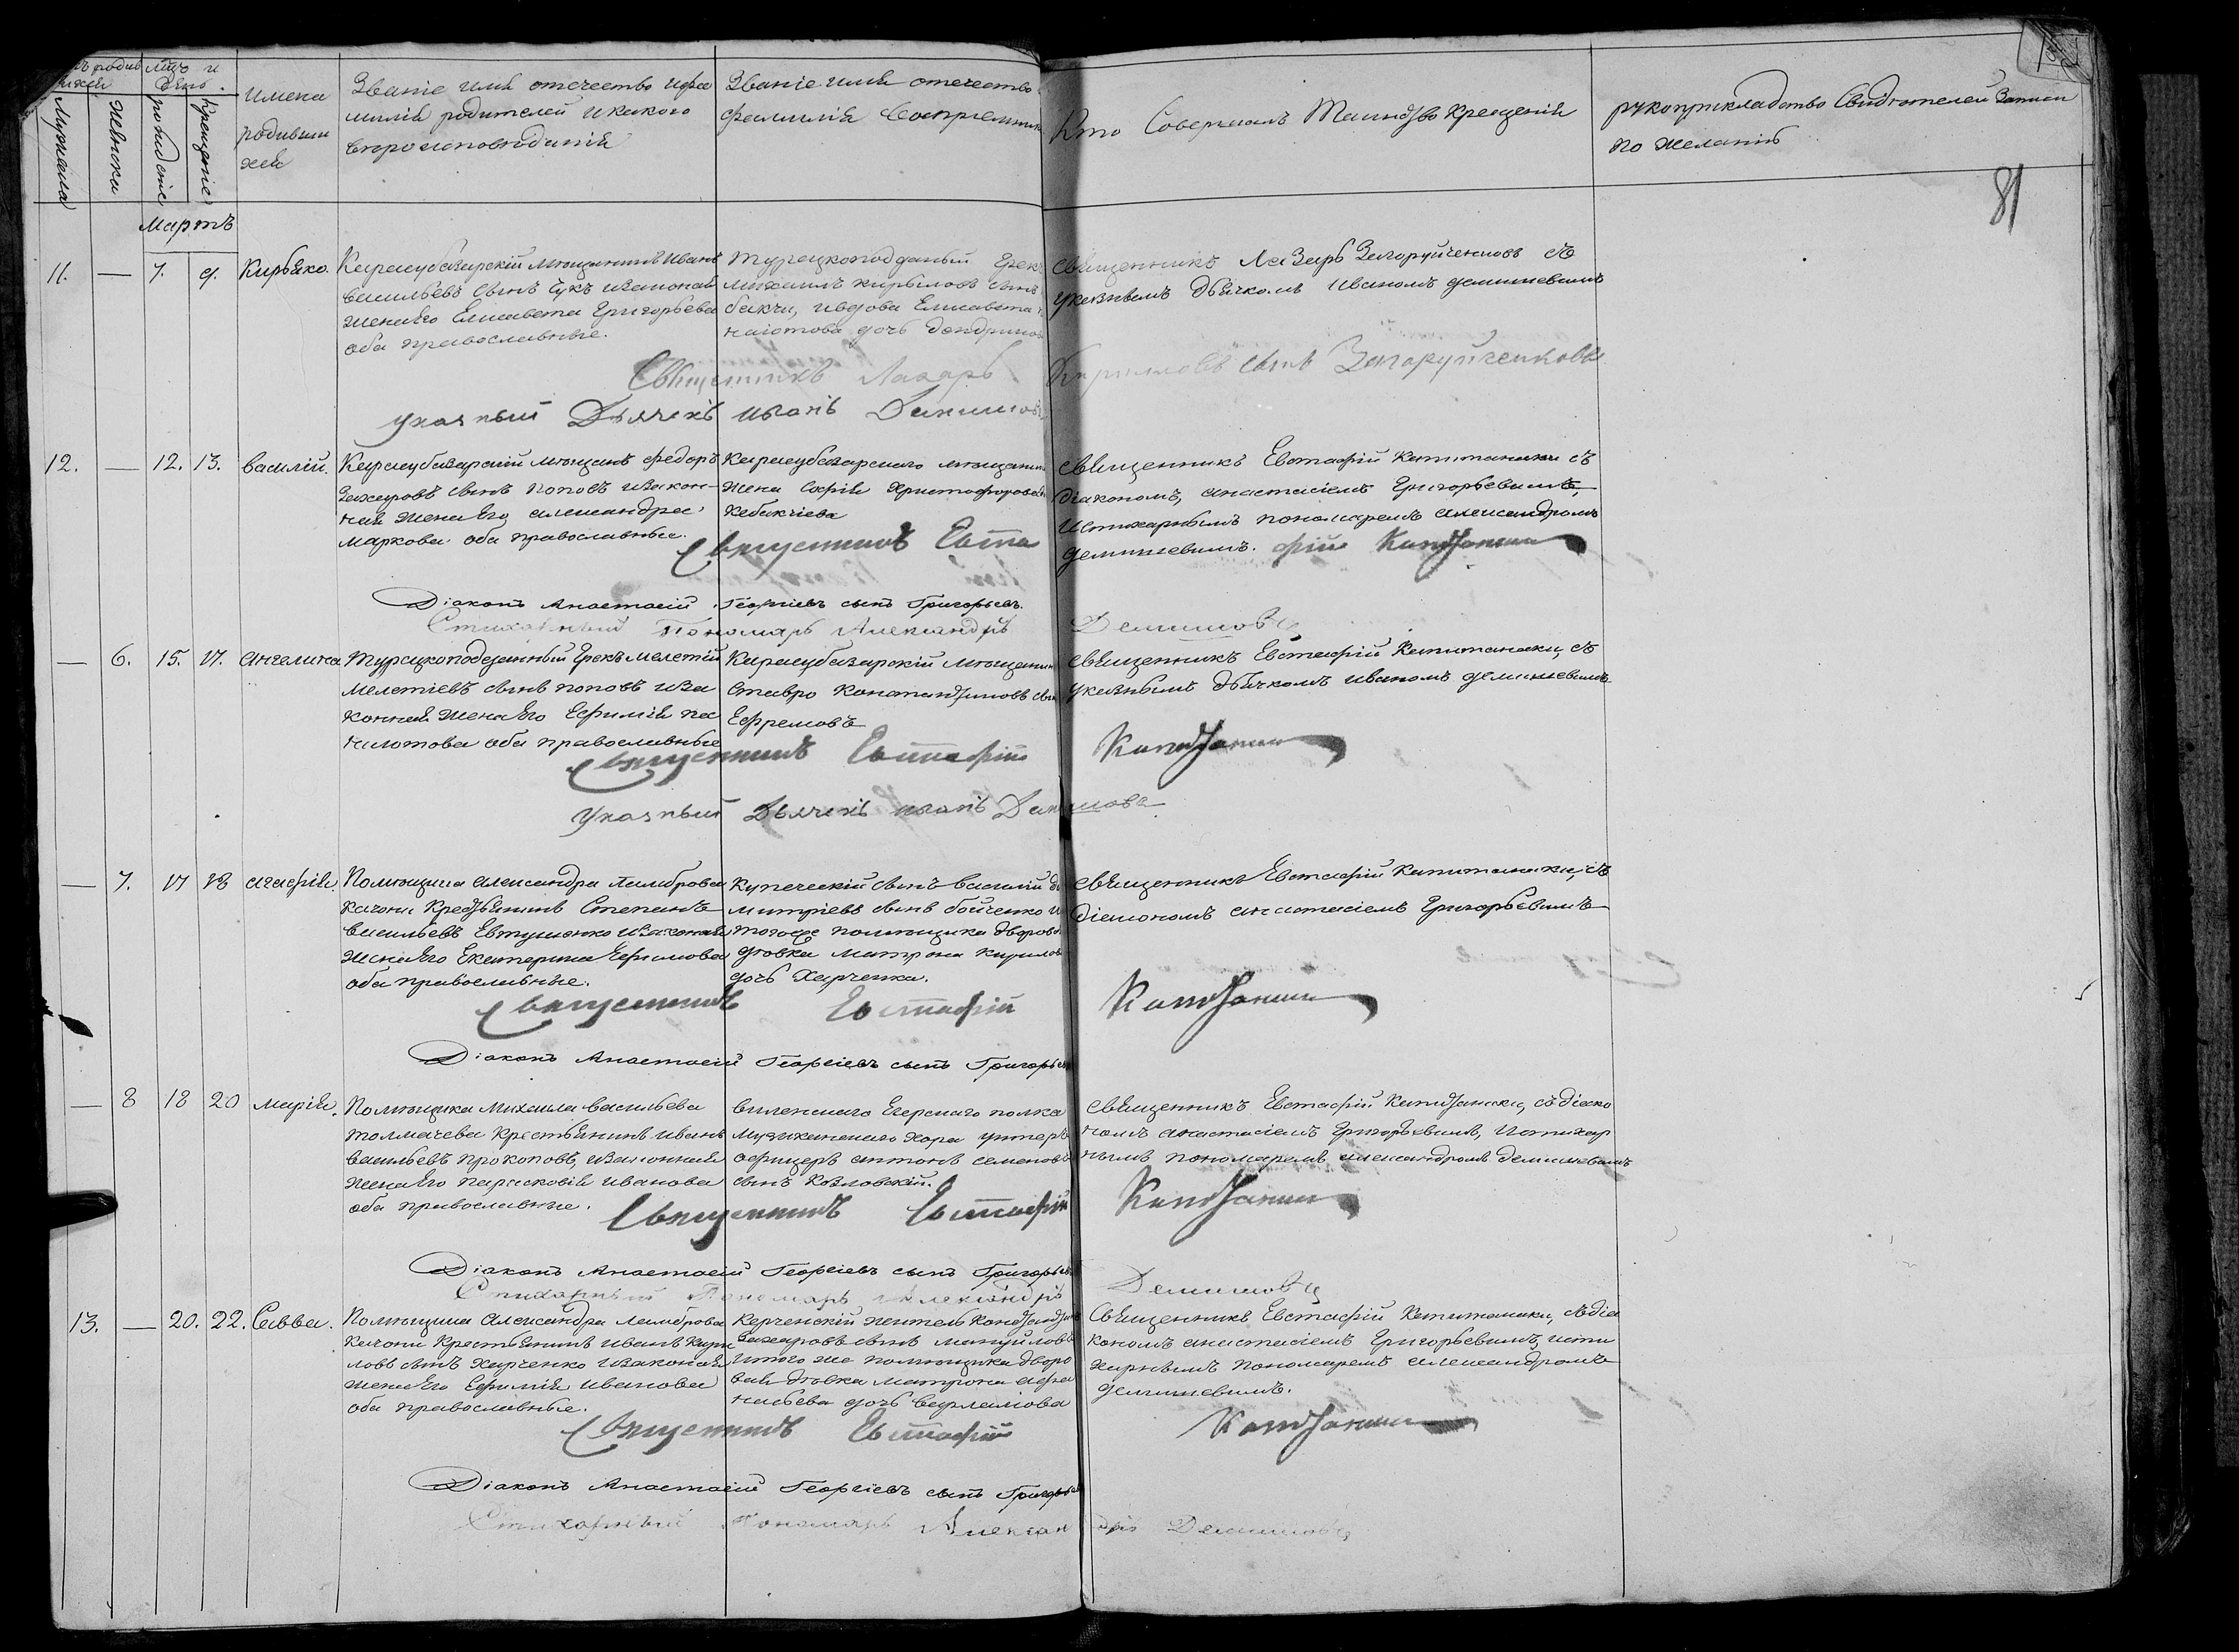 мѣсяцъ и
день.
Мужеска
Женска
рожденіе
крещеніе
имена
родивши
хся
Званіе имя отечество и фа
милія родителей и какого
вероисповѣданія
Званіе имя отечество
фамилія воспріемник
Кто Совершалъ Таинство Крещенія
рукоприкладство Свидѣтелей записи
по желанію
81
Мартъ
11. — 7. 9. Кирьяко.
Карасубазарскій мещанинъ Иванъ
Васильевъ сынъ Чукъ и законая
жена его Елисавета Григорьева
оба православные.
Турецкоподданый Грекъ
михаилъ кирьяковъ сынъ
бакчи, и вдова Елисавета
наіотова дочь дендринов
священникъ Лазарь Загоруйченковъ съ
указнымъ дьячкомъ иваномъ демишевымъ
Священникъ Лазарь Кириловъ сынъ Загоруйченковъ
указный Дьячекъ иванъ Демишовъ
12. — 12. 13. василій.
Карасубазарскій мещанъ федоръ
Захаровъ сынъ поповъ и закон-
ная жена его александра
маркова оба православные.
Карасубазарскаго мещанина
жена Софія Христофорова
Кебакчіева
священникъ Евстафій Капитанаки съ
діакономъ, анастасіемъ Григорьевымъ,
и стихарнымъ пономаремъ александромъ
демишевымъ.
Священникъ Евстафій Капитанаки
Діаконъ Анастасій Георгіевъ сынъ Григорьевъ.
Стихарный Пономарь Александръ Демишовъ
— 6. 15. 17. ангелина
Турецкоподданный Грекъ мелетій
мелетіевъ сынъ поповъ и за
конная жена его Ефимія па
наіотова оба православные
Карасубазарскій мещанин
Ставро Константиновъ сын
Ефремовъ
священникъ Евстафій Капитанаки, съ
указнымъ дьячкомъ иваномъ демишевымъ
Священникъ Евстафій Капитанаки
Указный Дьячекъ иванъ Демишовъ
— 7. 17 18 агафія.
Помещика александра Ламброва
качони Крестьянинъ Степанъ
васильевъ Евтушенко и законая
жена его Екатерина Ефимова
оба православные.
Купеческій сынъ василій ди
митріевъ сынъ бойченко и
того же помещика дворов
девка матрона кирилов
дочь Харченка.
священникъ Евстафій Капитанаки, съ
діакономъ анастасіемъ Григорьевымъ
Священникъ Евстафій Капитанаки
Діаконъ Анастасій Георгіевъ сынъ Григорьевъ
— 8 18 20 марія.
Помещика михаила васильева
толмачева крестьянинъ иванъ
васильевъ прокоповъ, и законная
жена его парасковія иванова
оба православные.
виленскаго Егерскаго полка
музиканскаго хора унтеръ
офицеръ антонъ семеновъ
сынъ Козловскій.
священникъ Евстафій Капитанаки, съ діако
номъ анастасіемъ Григорьевымъ, и стихар
нымъ пономаремъ александромъ демишевымъ
Священникъ Евстафій Капитанаки
Діаконъ Анастасій Георгіевъ сынъ Григорьевъ
Стихарный Пономарь Александръ Демишовъ
13. — 20. 22. Савва.
Помещика александра ламброва
качони крестьянинъ иванъ кири
ловъ сынъ Харченко и законая
жена его Ефимія иванова
оба православные.
Керченскій житель Константинъ
захаровъ сынъ мануйловъ
и того же помещика дворо
вая девка матрона афа
насьева дочь варламова
Священникъ Евстафій Капитанаки, съ діа
кономъ анастасіемъ Григорьевымъ, и сти
харнымъ пономаремъ александромъ
демишевымъ.
Священникъ Евстафій Капитанаки
Діаконъ Анастасій Георгіевъ сынъ Григорьев
Стихарный Пономарь Александръ Демишовъ